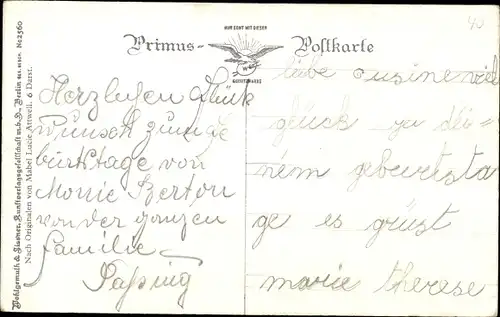 Primus-Postkarte
NUR ECHT MIT DIESER
SCHUTZMARKE
40
Herzlichen Glück
wunsch zum ge
burtstage von
Monie Berton
von der ganzen
Familie
liebe cusine viel
glück zu dei
nem geburtsta
ge es grüst
marie therese
Wohlgemuth & Lissner, Kunstverlagsgesellschaft m.b.H. Berlin No 2560
Nach Originalen von Mabel Lucie Attwell.